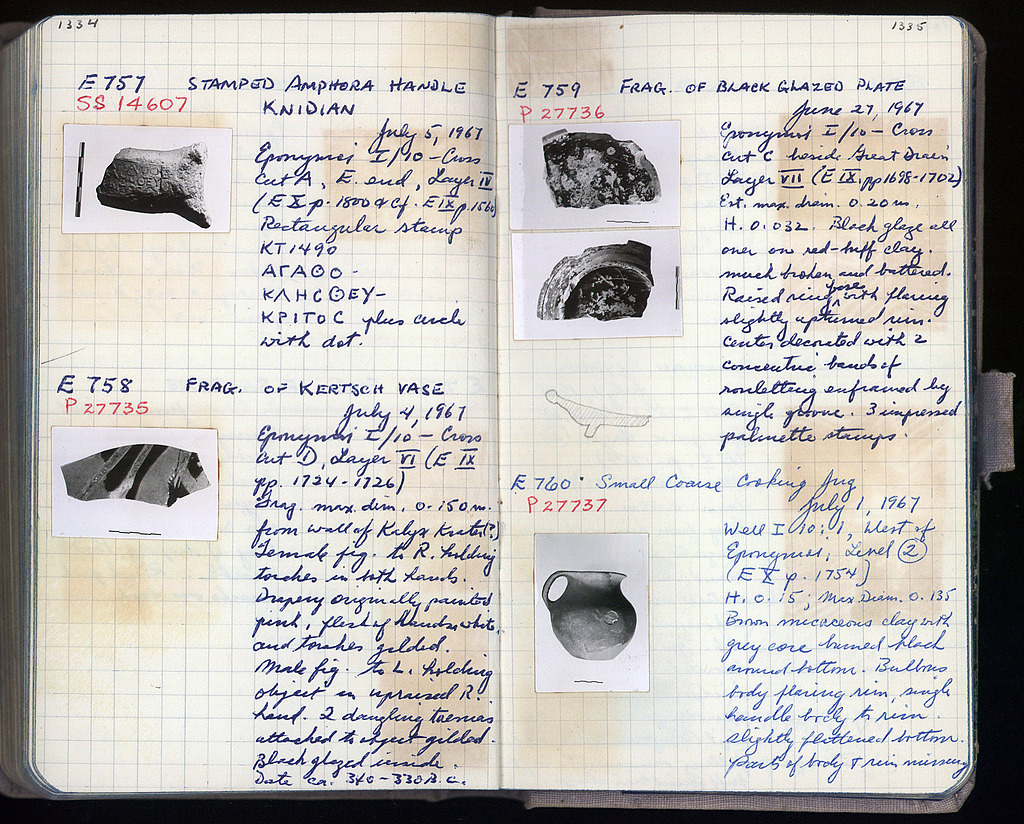 1334
E 757 STAMPED AMPHORA HANDLE
SS 14607 KNIDIAN
July 5, 1967
Eponymoi I/10 – Cross
cut A, E. end, Layer IV
(E X p. 1800 & cf. E IX p. 1560)
Rectangular stamp
KT 1490
ΑΓΑΘΟ -
ΚΛΗϹ ΘΕΥ–
ΚΡΙΤΟϹ plus circle
with dot.
E 758 FRAG. OF KERTSCH VASE
P 27735
July 4, 1967
Eponymoi I/10 – Cross
cut D, Layer VI (E IX
pp. 1724-1726)
Frag. max. dim. 0.150 m.
from wall of Kalyx Krater(?)
Female fig. to R. holding
torches in both hands.
Drapery originally painted
pink, flesh of hands white,
and torches gilded.
Male fig. to L. holding
object in upraised R.
hand. 2 dangling taenias
attached to object gilded.
Black glazed inside.
Date ca. 340-330 B.C.
1335
E 759 FRAG. OF BLACK GLAZED PLATE
P 27736
June 27, 1967
Eponymoi I/10 – Cross
cut C beside Great Drain
Layer VII (E IX, pp 1698-1702)
Est. max. diam. 0.20 m.
H. 0.032. Black glaze all
over on red-buff clay.
much broken and battered.
Raised ring base with flaring
slightly upturned rim.
Center decorated with 2
concentric bands of
rouletting enframed by
single groove. 3 impressed
palmette stamps.
E 760 Small Coarse Cooking Jug
P 27737
July 1, 1967
Well I 10:1, West of
Eponymoi, Level 2
(E X p. 1754)
H. 0.15; Max Diam. 0.135
Brown micaceous clay with
grey core burned black
around bottom. Bulbous
body flaring rim, single
handle body to rim.
slightly flattened bottom.
Parts of body & rim missing